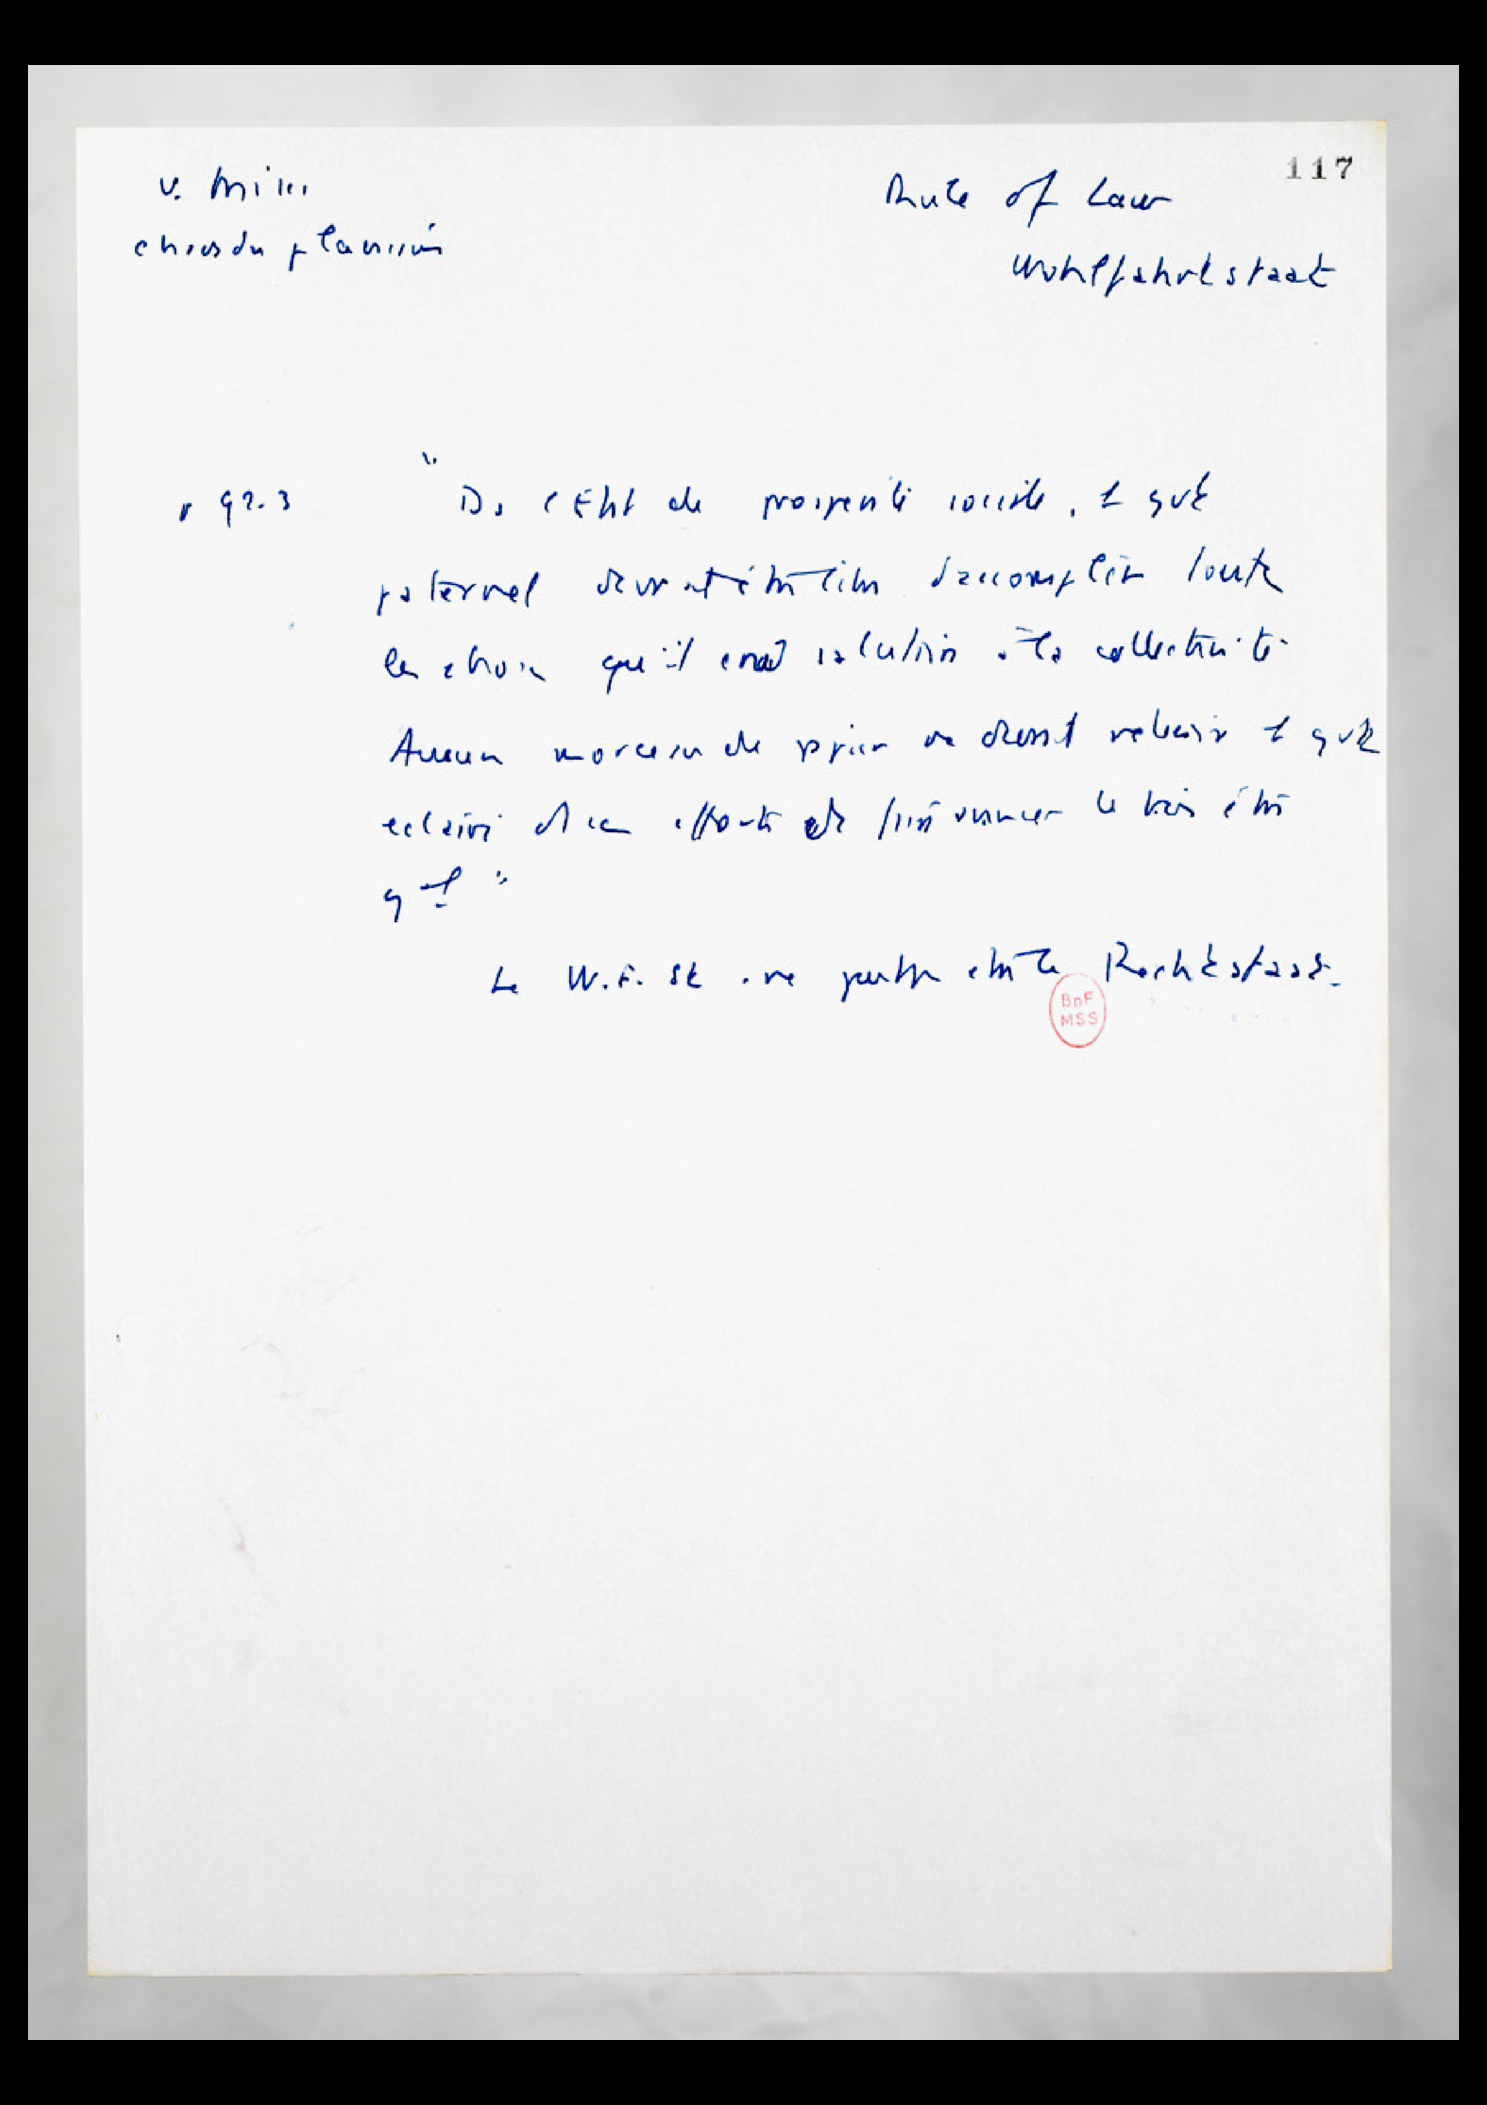 117
v. Mises
chaos du planisme
Rule of Law
Wohlfahrtstaat
p 92.3 "Ds l'Etat de prospérité sociale, 1 gvt
paternel devrait être libre d'accomplir toutes
les choses qu'il croit salutaires à la collectivité.
Aucun morceau de papier ne devrait retenir 1 gvt
éclairé ds ces efforts de faire avancer le bien être
gal"
Le W.F. St. ne peut être le Rechtstaat.
BnF
MSS